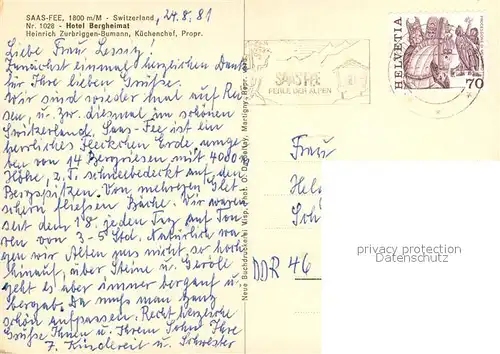 SAAS-FEE, 1800 m/M - Switzerland, 24.8.81
Nr. 1028 - Hotel Bergheimat
Heinrich Zurbriggen-Bumann, Küchenchef, Propr.
Liebe Frau
Zunächst einmal herzlichen Dank
für Ihre lieben Grüße.
Wir sind wieder mal auf Rei-
sen, u. zw. diesmal im schönen
Switzerland. Saas-Fee ist ein
herrliches Fleckchen Erde, umge-
ben von 14 Bergriesen mit 4000 m
Höhe, z. T. schneebedeckt auf den
Bergspitzen. Von mehreren Glet-
schern fliessen Bäche. Wir waren
seit dem 18. jeden Tag auf Tou-
ren von 3-5 Std. Natürlich wa-
gen wir Alten uns nicht so hoch
hinauf, über Steine u. Geröll
geht es aber immer bergauf u.
bergab. Da muß man ganz
schön aufpassen. Recht herzliche
Grüße Ihnen u. Ihrem Sohn Ihre
u. Schwester
Neue Buchdruckerei Visp, Phot. O. Darbellay, Martigny, Repr. verb.
SAAS-FEE
PERLE DER ALPEN
HELVETIA
70
Frau
DDR 46
privacy protection
Datenschutz